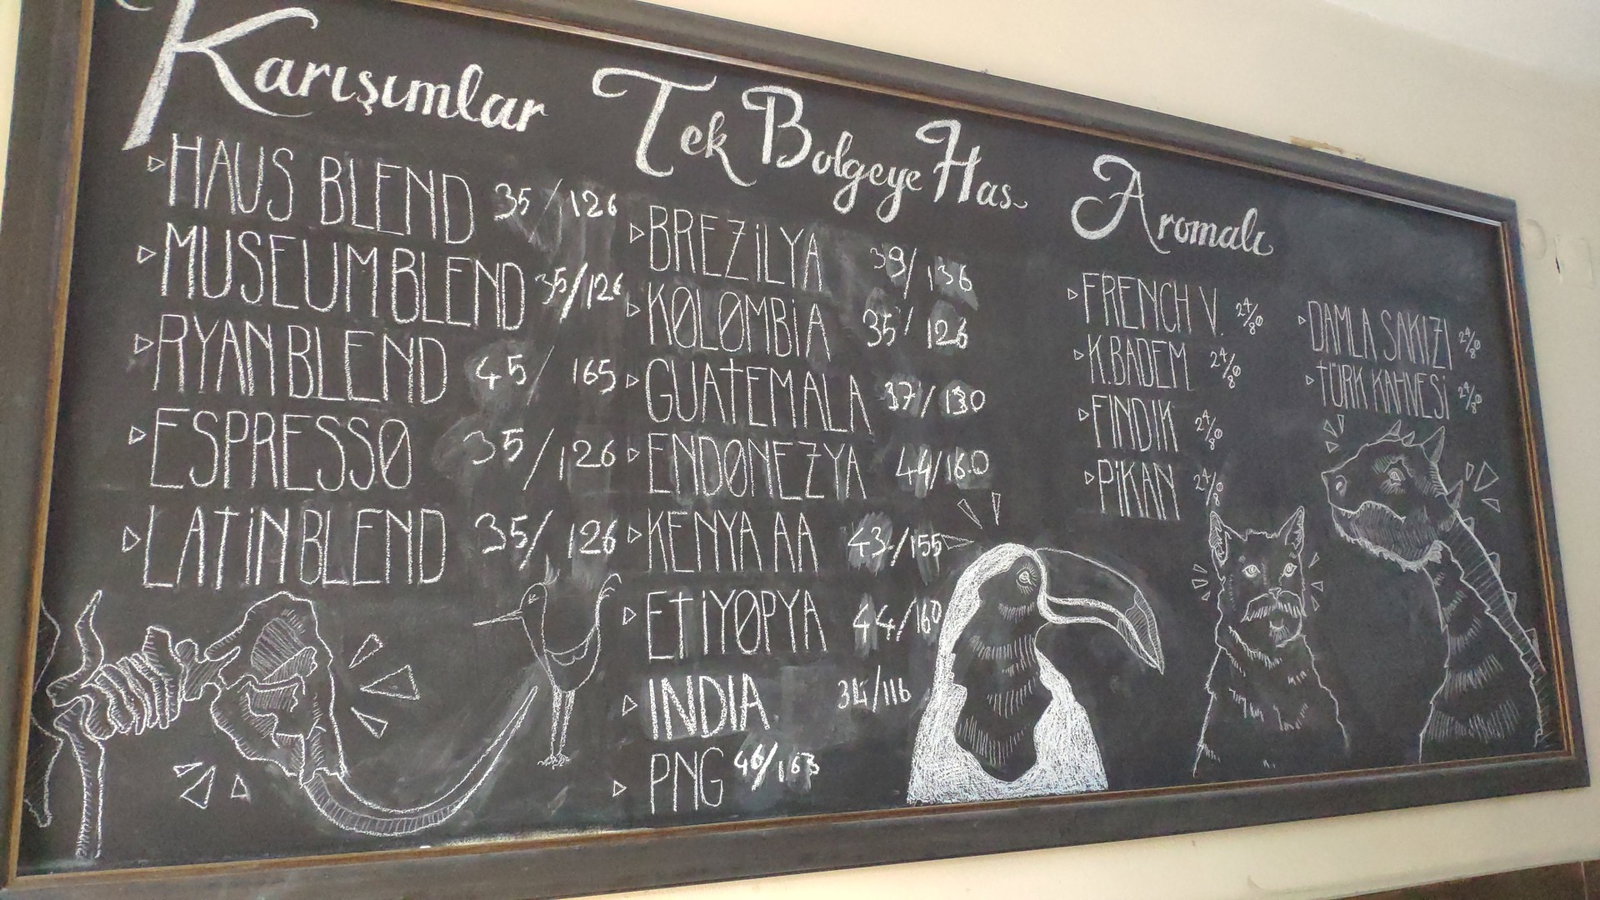 Karışımlar
HAUS BLEND 35/126
MUSEUM BLEND 35/126
RYAN BLEND 45/165
ESPRESSO 35/126
LATİN BLEND 35/126
Tek Bolgeye Has
BREZİLYA 39/136
KOLOMBİA 35/126
GUATEMALA 37/130
ENDONEZYA 44/160
KENYA AA 43/155
ETİYOPYA 44/160
INDIA
PNG 46/163
Aromalı
FRENCH V. 24/80
K.BADEM 24/80
FINDIK 24/80
PİKAN 24/8
DAMLA SAKIZI 24/80
TÜRK KAHVESİ 24/80